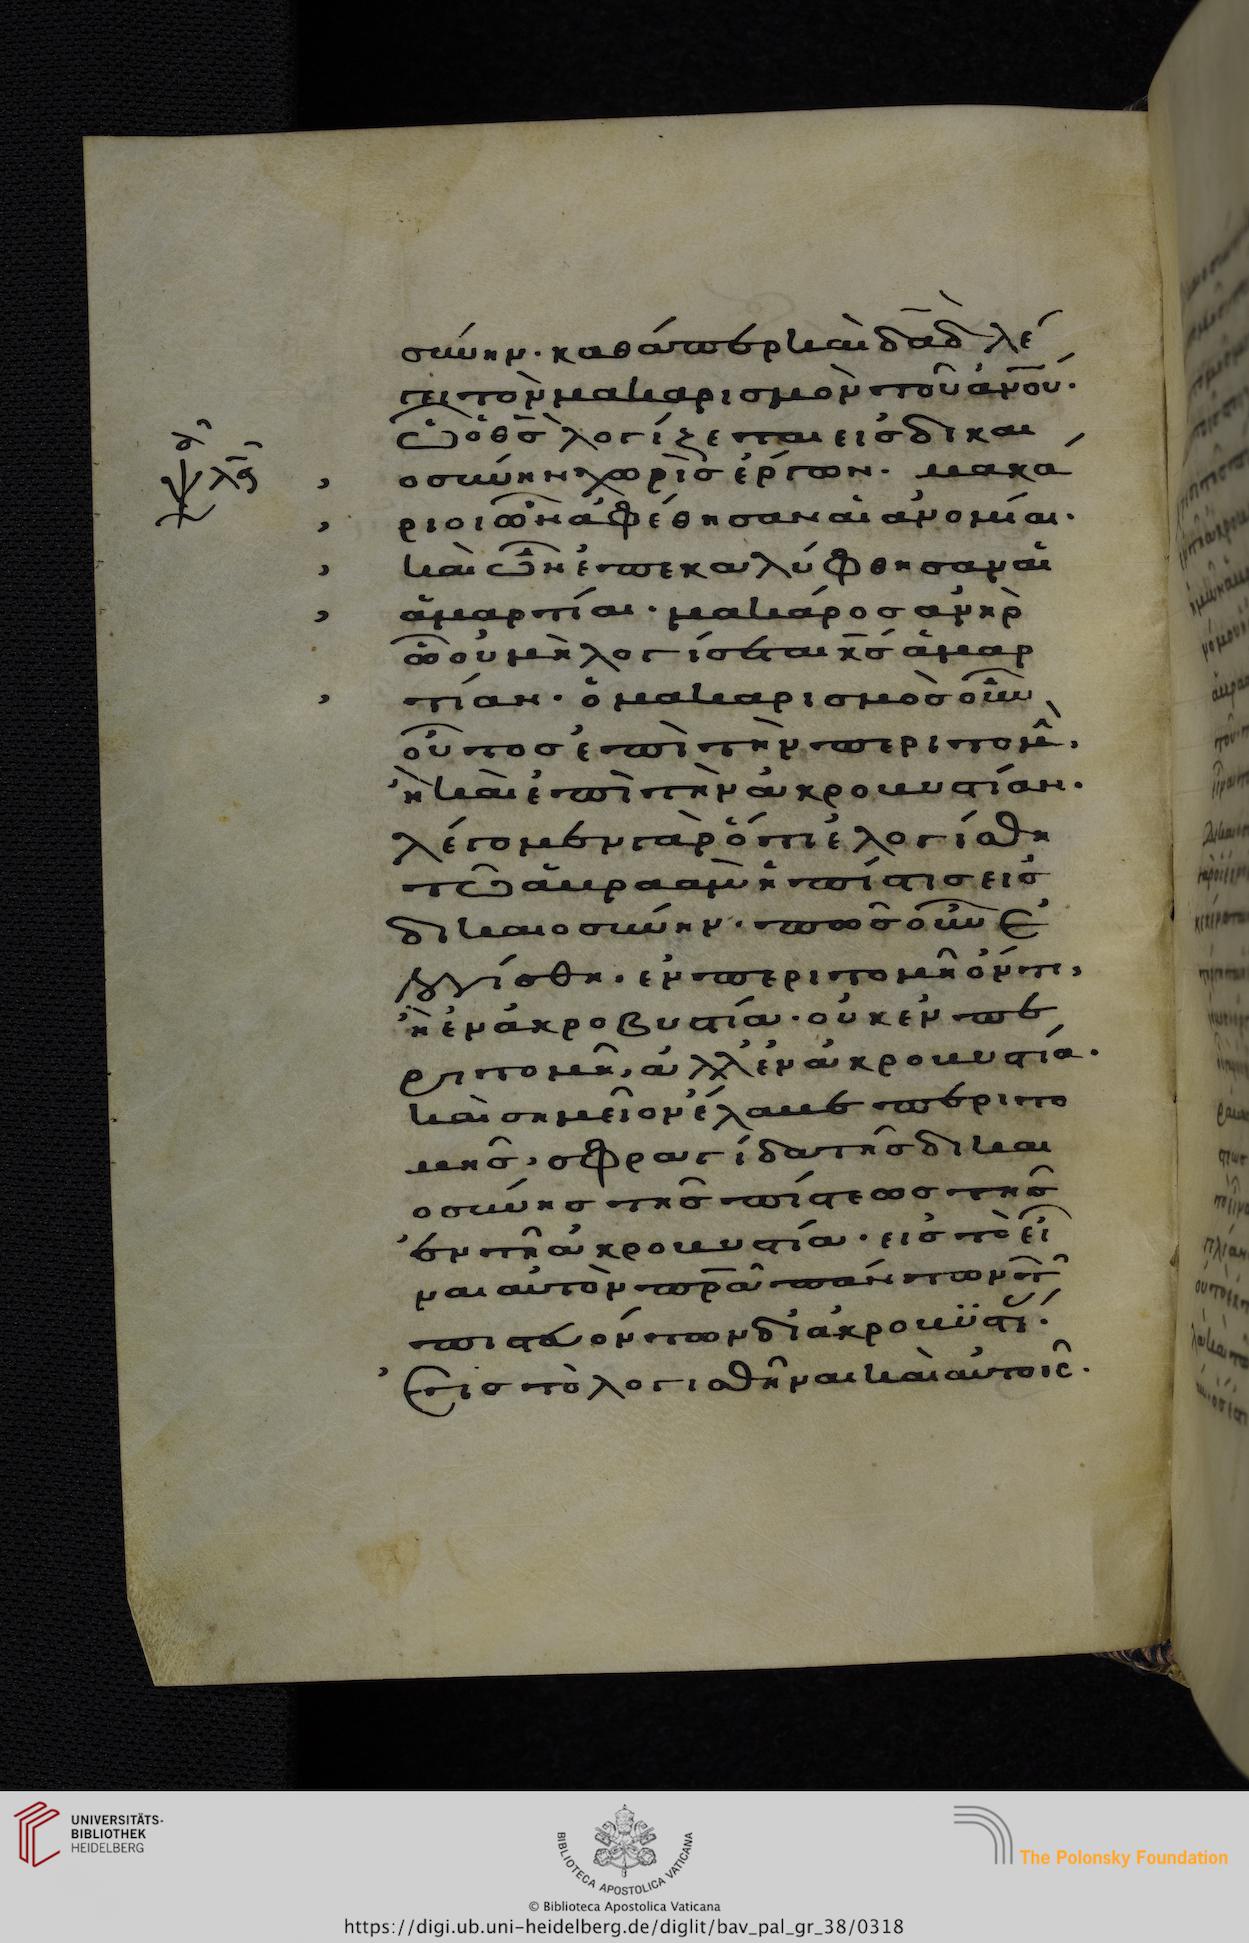 σύνην· καθάπερ καὶ δᾱδ̄ λέ
γει τὸν μακαρισμὸν τοῦ ἀν̄ου·
ᾧ ὁ θ̄ς λογίζεται εἰς δικαι
οσύνην χωρὶς ἔργων· μακά
ριοι ὧν ἀφέθησαν αἱ ἀνομίαι·
καὶ ὧν ἐπεκαλύφθησαν αἱ
ἁμαρτίαι· μακάρος ἀνὴρ
ᾧ οὐ μὴ λογίσεται κ̄ς ἁμαρ
τίαν· ὁ μακαρισμὸς οὖν
οὗτος ἐπὶ τὴν περιτομὴ,
ἢ καὶ ἐπὶ τὴν ἀκροβυστίαν·
λέγομεν γὰρ ὅτι ἐλογίσθη
τῶ ἀβραὰμ ἡ πίστις εἰς
δικαιοσύνην· πῶς οὖν ἐ
λογίσθη· ἐν περιτομῆ ὄντι,
ἢ ἐν ἀκροβυστία· οὐκ ἐν πε
ριτομῆ, ἀλλ' ἐν ἀκροβυστία·
καὶ σημεῖον ἔλαβε περιτο
μῆς, σφραγίδα τῆς δικαι
οσύνης τῆς πίστεως τῆς
ἐν τῆ ἀκροβυστία· εἰς τὸ εἶ
ναι αὐτὸν πρ̄α πάντων τῶν
πιστευόντων δι' ἀκροβϋστί·
εἰς τὸ λογισθῆναι καὶ αὐτοῖς·
© Biblioteca Apostolica Vaticana
https://digi.ub.uni-heidelberg.de/diglit/bav_pal_gr_38/0318
UNIVERSITÄTS-
BIBLIOTHEK
HEIDELBERG
BIBLIOTECA APOSTOLICA VATICANA
The Polonsky Foundation